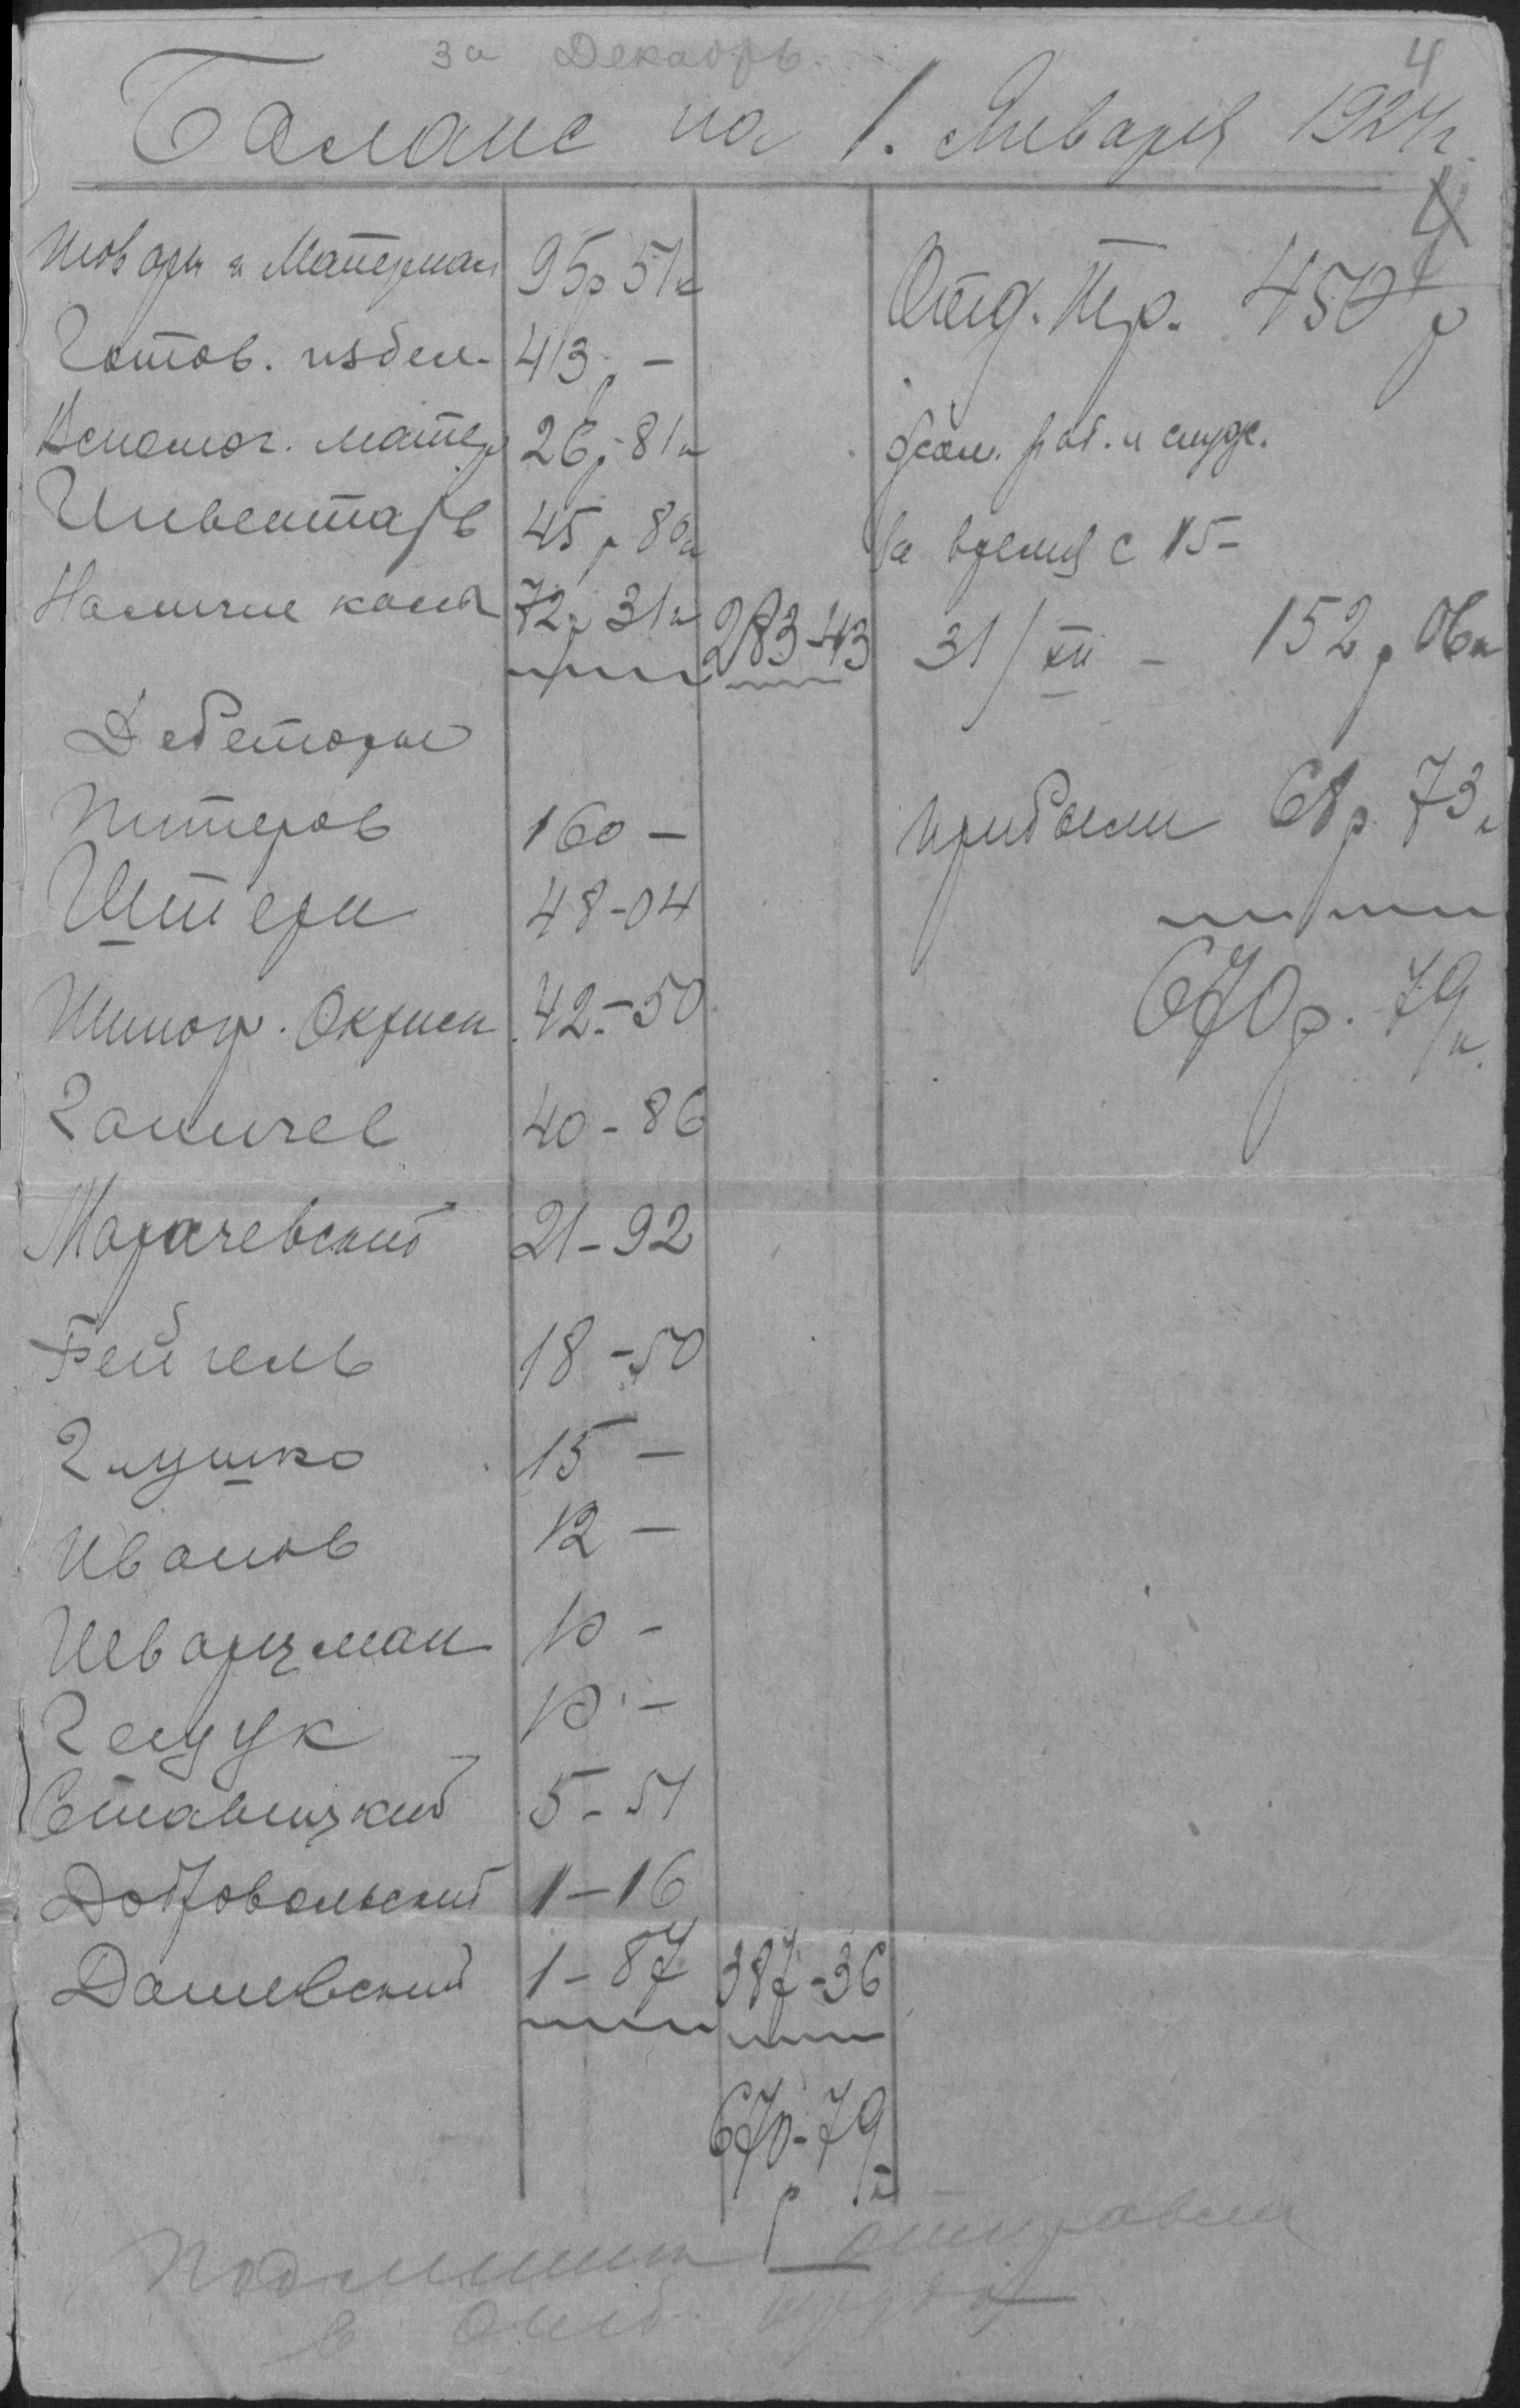 за Декабрь
4
Баланс на 1. Января 1924 г.
4
Товары и Материал 95 р 51 к
Готов. издел. 43 р –
Вспомог. матер 26 р 81 к
Инвентарь 45 р 80 к
Наличие кассы 72 р 31 к 283-43
Дебеторы
Питеров 160 –
Штерн 48-04
Типогр. Окрисп 42-50
Ганичев 40-86
Марачевский 21-92
Фейгель 18-50
Глушко 15 –
Иванов 12 –
Шварцман 10 –
Гецук 10 –
Ставицкий 5-51
Добровольский 1-16
Дашевский 1-87 387-36
670-79
р к
Отд. Тр. 450 р
жал. раб. и служ.
за время с 15-
31/XII – 152 р 06 к
прибыли 68 р. 73 к
670 р. 79 к.
Подлинник отправлен
в отд. труда